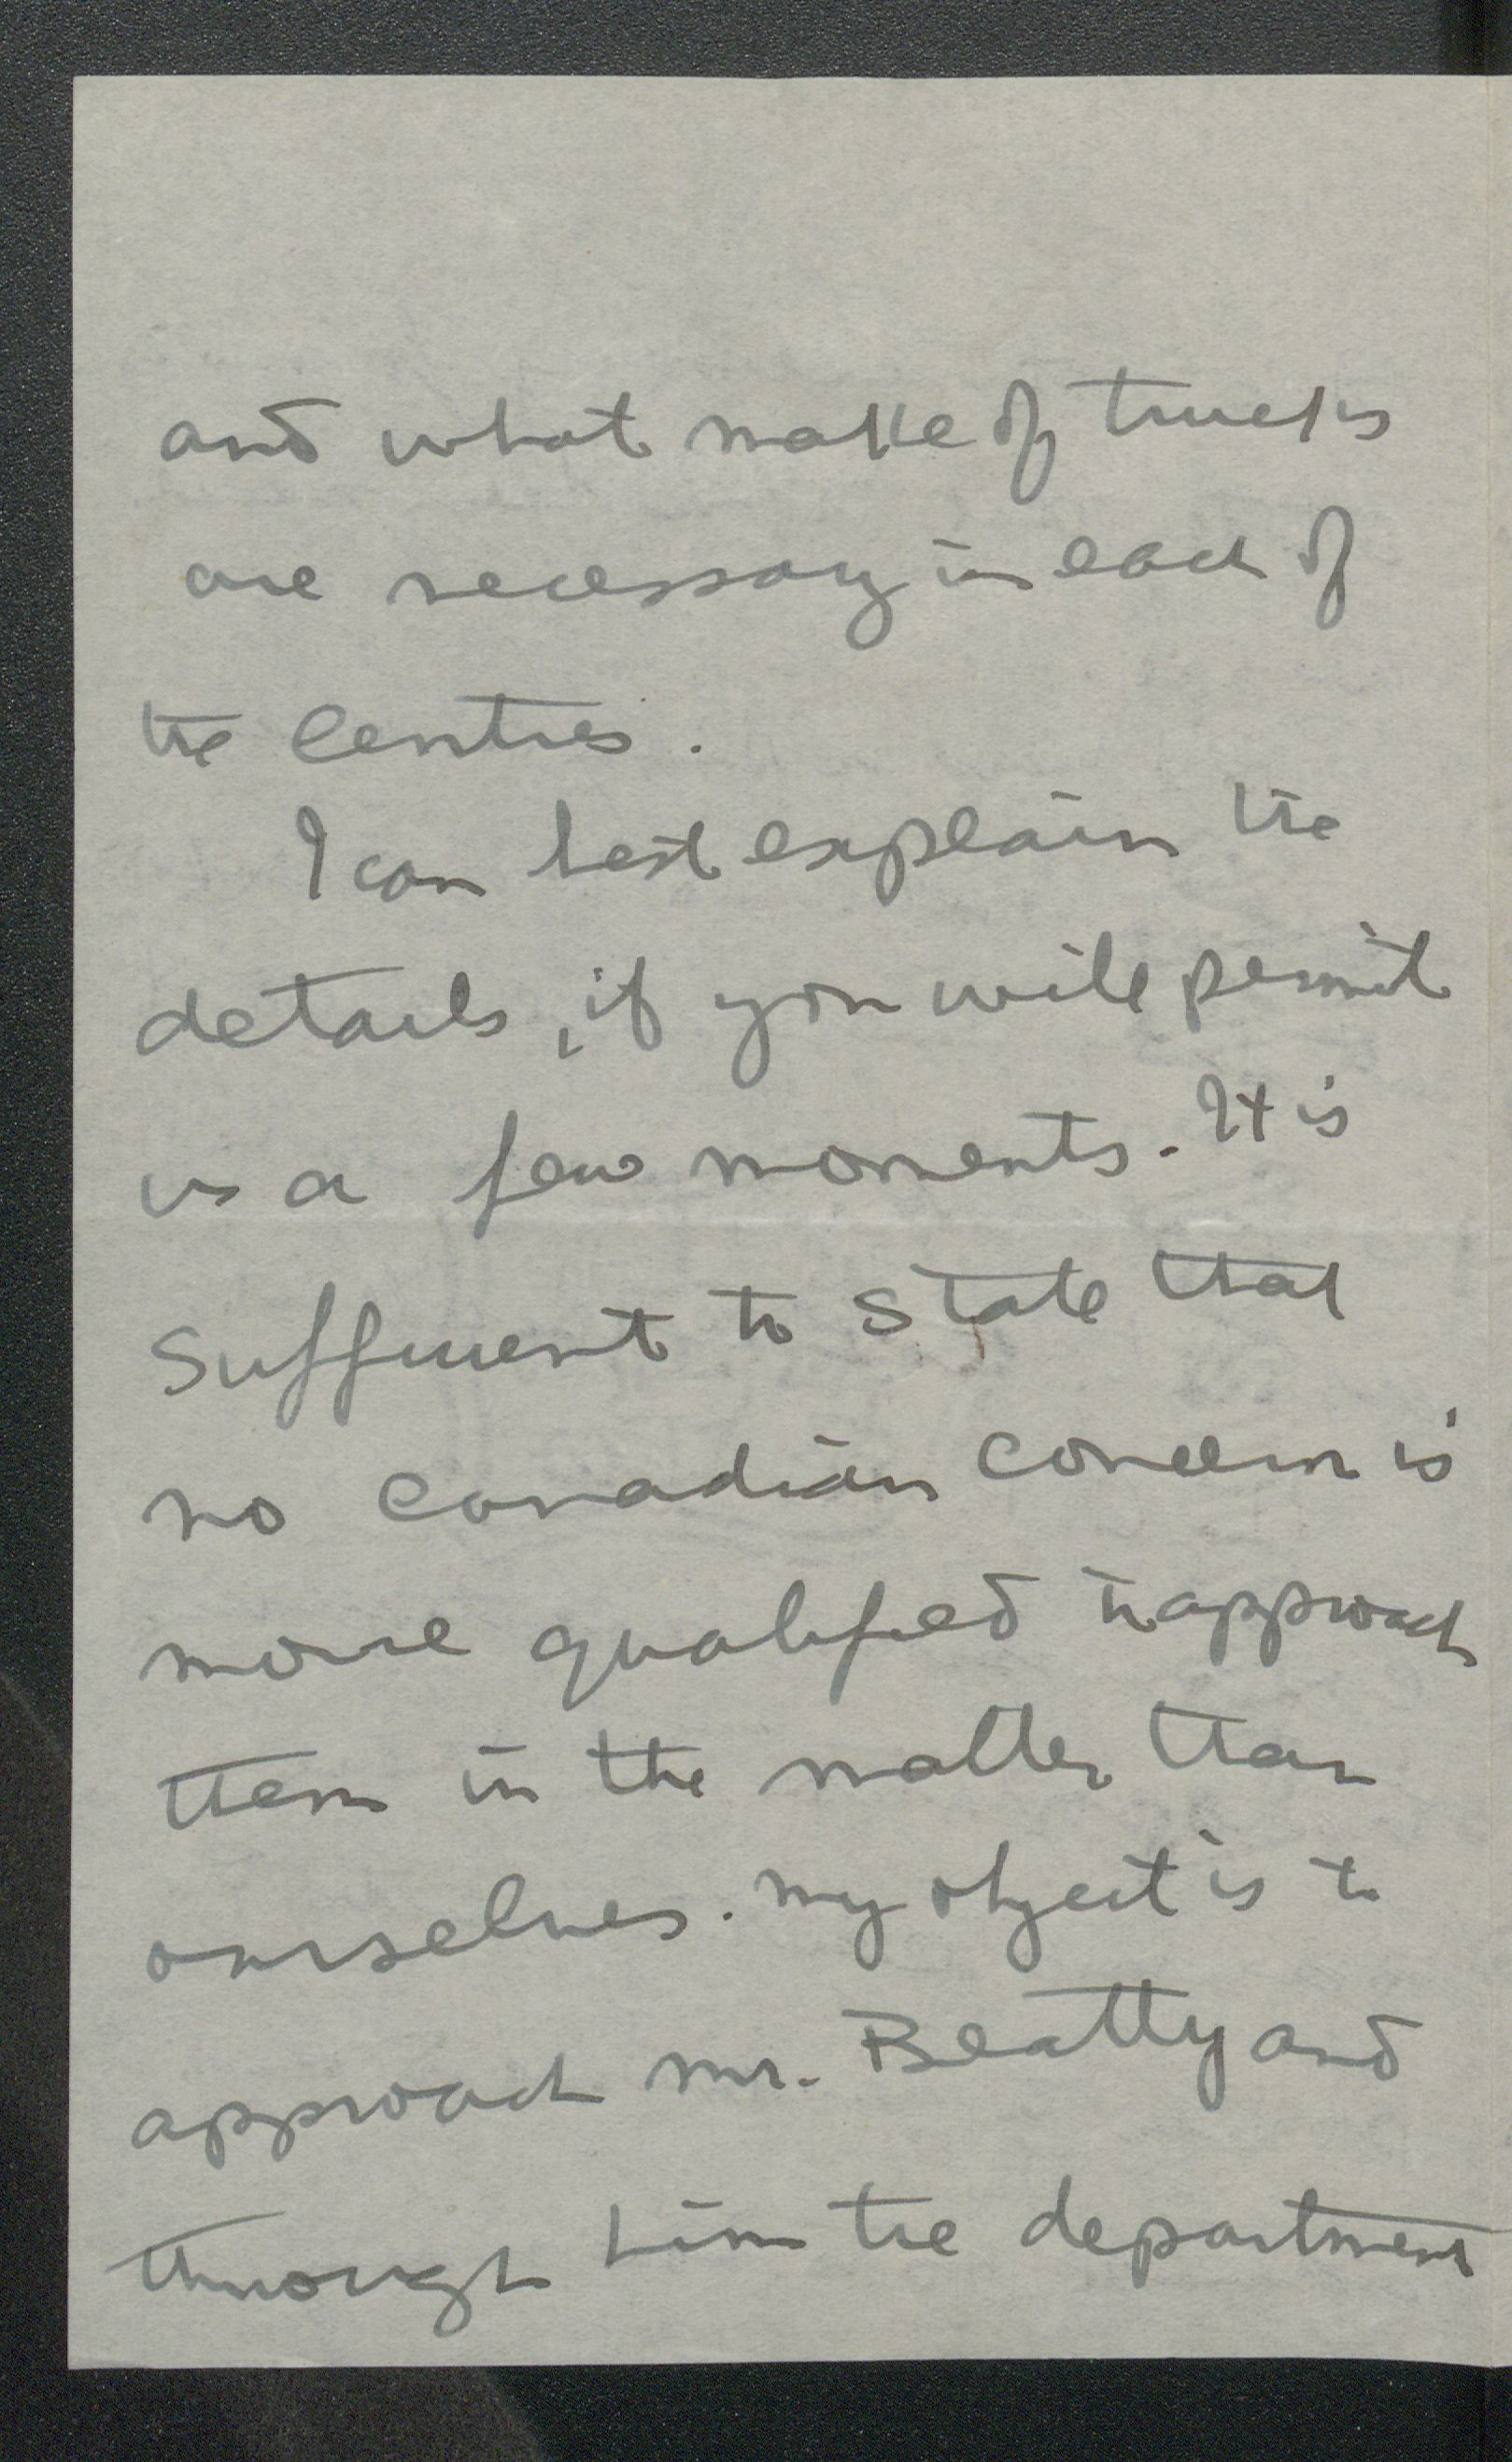 and what make of trucks
are necessary in each of
the centres.
I can best explain the
details, if you will permit
us a few moments. It is
sufficient to state that
no Canadian concern is
more qualified to approach
them in the matter than
ourselves. My object is to
approach Mr. Beatty and
through him the department